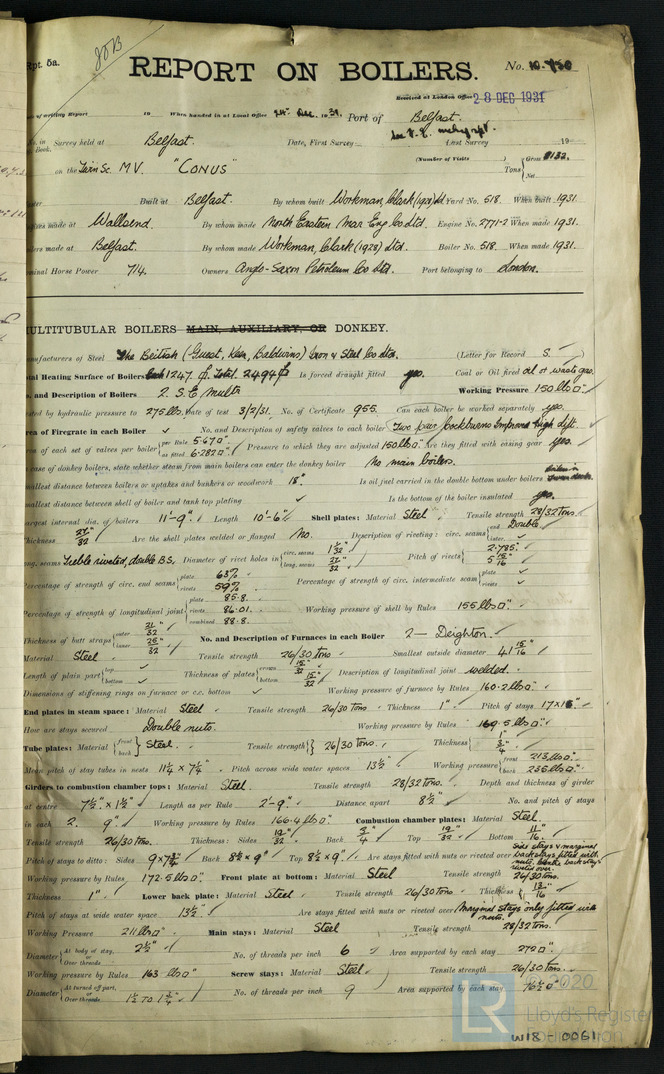 Rpt. 5a.
JOB
REPORT ON BOILERS.
No. 10.
Received at London Office 28 DEC 1931
of writing Report 19 When handed in at Local Office 24th Dec. 1931. Port of Belfast.
No. in Book. Survey held at Belfast. Date, First Survey See F.E. mchy rpt. Last Survey 19
(Number of Visits
on the Twin Sc. M.V. "CONUS" Tons Gross 8132. Net
Built at Belfast. By whom built Workman, Clark (1928) Ltd Yard No. 518. When built 1931.
made at Wallsend. By whom made North Eastern Mar Eng Co Ltd. Engine No. 2771-2 When made 1931.
made at Belfast. By whom made Workman, Clark (1928) Ltd. Boiler No. 518. When made 1931.
Nominal Horse Power 714. Owners Anglo-Saxon Petroleum Co Ltd. Port belonging to London.
MULTITUBULAR BOILERS MAIN, AUXILIARY, OR DONKEY.
Manufacturers of Steel The British (Guest, Keen, Baldwins) Iron & Steel Co Ltd. (Letter for Record S. )
Total Heating Surface of Boilers Each 1247. Total. 2494 Is forced draught fitted yes. Coal or Oil fired oil or waste gas.
No. and Description of Boilers 2. S.E. mults Working Pressure 150 lbs □"
Tested by hydraulic pressure to 275 lbs. Date of test 3/2/31. No. of Certificate 955. Can each boiler be worked separately yes.
Area of Firegrate in each Boiler ✓ No. and Description of safety valves to each boiler Two pair Cockburns Improved High Lift.
Area of each set of valves per boiler per Rule 5.670□" as fitted 6.282□" Pressure to which they are adjusted 150 lbs □" Are they fitted with easing gear yes.
In case of donkey boilers, state whether steam from main boilers can enter the donkey boiler No main boilers.
Smallest distance between boilers or uptakes and bunkers or woodwork 18" Is oil fuel carried in the double bottom under boilers
Smallest distance between shell of boiler and tank top plating ✓ Is the bottom of the boiler insulated yes.
Largest internal dia. of boilers 11'-9". Length 10'-6" Shell plates: Material Steel Tensile strength 28/32 tons.
Thickness 27/32 Are the shell plates welded or flanged No. Description of riveting: circ. seams end Double inter. ✓
long. seams Treble riveted, double B.S. Diameter of rivet holes in circ. seams long. seams Pitch of rivets 2.785" 5 15/16
Percentage of strength of circ. end seams plate 63% rivets 59% Percentage of strength of circ. intermediate seam plate ✓ rivets ✓
Percentage of strength of longitudinal joint plate 85.8. rivets 86.01. combined 88.8. Working pressure of shell by Rules 155 lbs □".
Thickness of butt straps outer inner No. and Description of Furnaces in each Boiler 2 — Deighton.
Material Steel Tensile strength 26/30 tons Smallest outside diameter 41 15/16
Length of plain part top ✓ bottom ✓ Thickness of plates crown 15/32 bottom 15/32 Description of longitudinal joint welded.
Dimensions of stiffening rings on furnace or c.c. bottom ✓ Working pressure of furnace by Rules 160.2 lbs □"
End plates in steam space: Material Steel Tensile strength 26/30 tons Thickness 1" Pitch of stays 17 x 16"
How are stays secured Double nuts. Working pressure by Rules 169.5 lbs □".
Tube plates: Material front back Steel. Tensile strength 26/30 tons. Thickness 1" 3/4"
Mean pitch of stay tubes in nests 11¼ x 7¼ Pitch across wide water spaces 13½ Working pressure front 213 lbs □" back 236 lbs □"
Girders to combustion chamber tops: Material Steel. Tensile strength 28/32 tons. Depth and thickness of girder
at centre 7½" x 1½" Length as per Rule 2'-9" Distance apart 8½" No. and pitch of stays
in each 2. 9" Working pressure by Rules 166.4 lbs □" Combustion chamber plates: Material Steel.
Tensile strength 26/30 tons. Thickness: Sides 19/32 Back 3/4 Top 19/32 Bottom 11/16.
Pitch of stays to ditto: Sides 9 x 7¾ Back 8½ x 9" Top 8½ x 9" Are stays fitted with nuts or riveted over side stays & marginal back stays fitted with nuts, back stays riveted over.
Working pressure by Rules 172.5 lbs □" Front plate at bottom: Material Steel Tensile strength 26/30 tons.
Thickness 1" Lower back plate: Material Steel Tensile strength 26/30 tons Thickness 13/16
Pitch of stays at wide water space 13½ Are stays fitted with nuts or riveted over Marginal stays only fitted with nuts.
Working Pressure 211 lbs □" Main stays: Material Steel Tensile strength 28/32 tons.
Diameter At body of stay, or Over threads 2½" No. of threads per inch 6 Area supported by each stay 272□".
Working pressure by Rules 163 lbs □" Screw stays: Material Steel Tensile strength 26/30 tons.
Diameter At turned off part, or Over threads 1½ to 1¾" No. of threads per inch 9 Area supported by each stay 76½□"
© 2020
LR
Lloyd's Register
Foundation
W18-0061